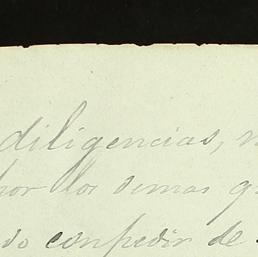 diligencias,
por los demas q
do conpedir de